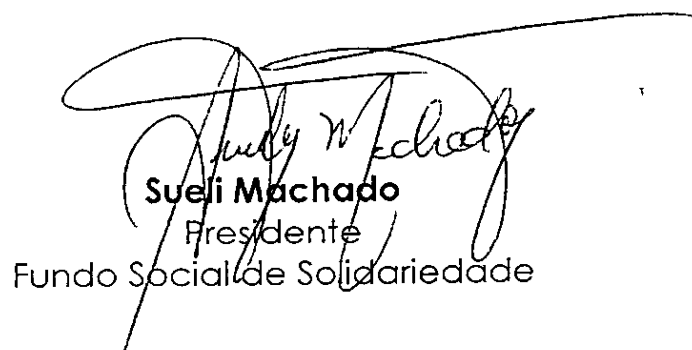 Suely Machado
Sueli Machado
Presidente
Fundo Social de Solidariedade